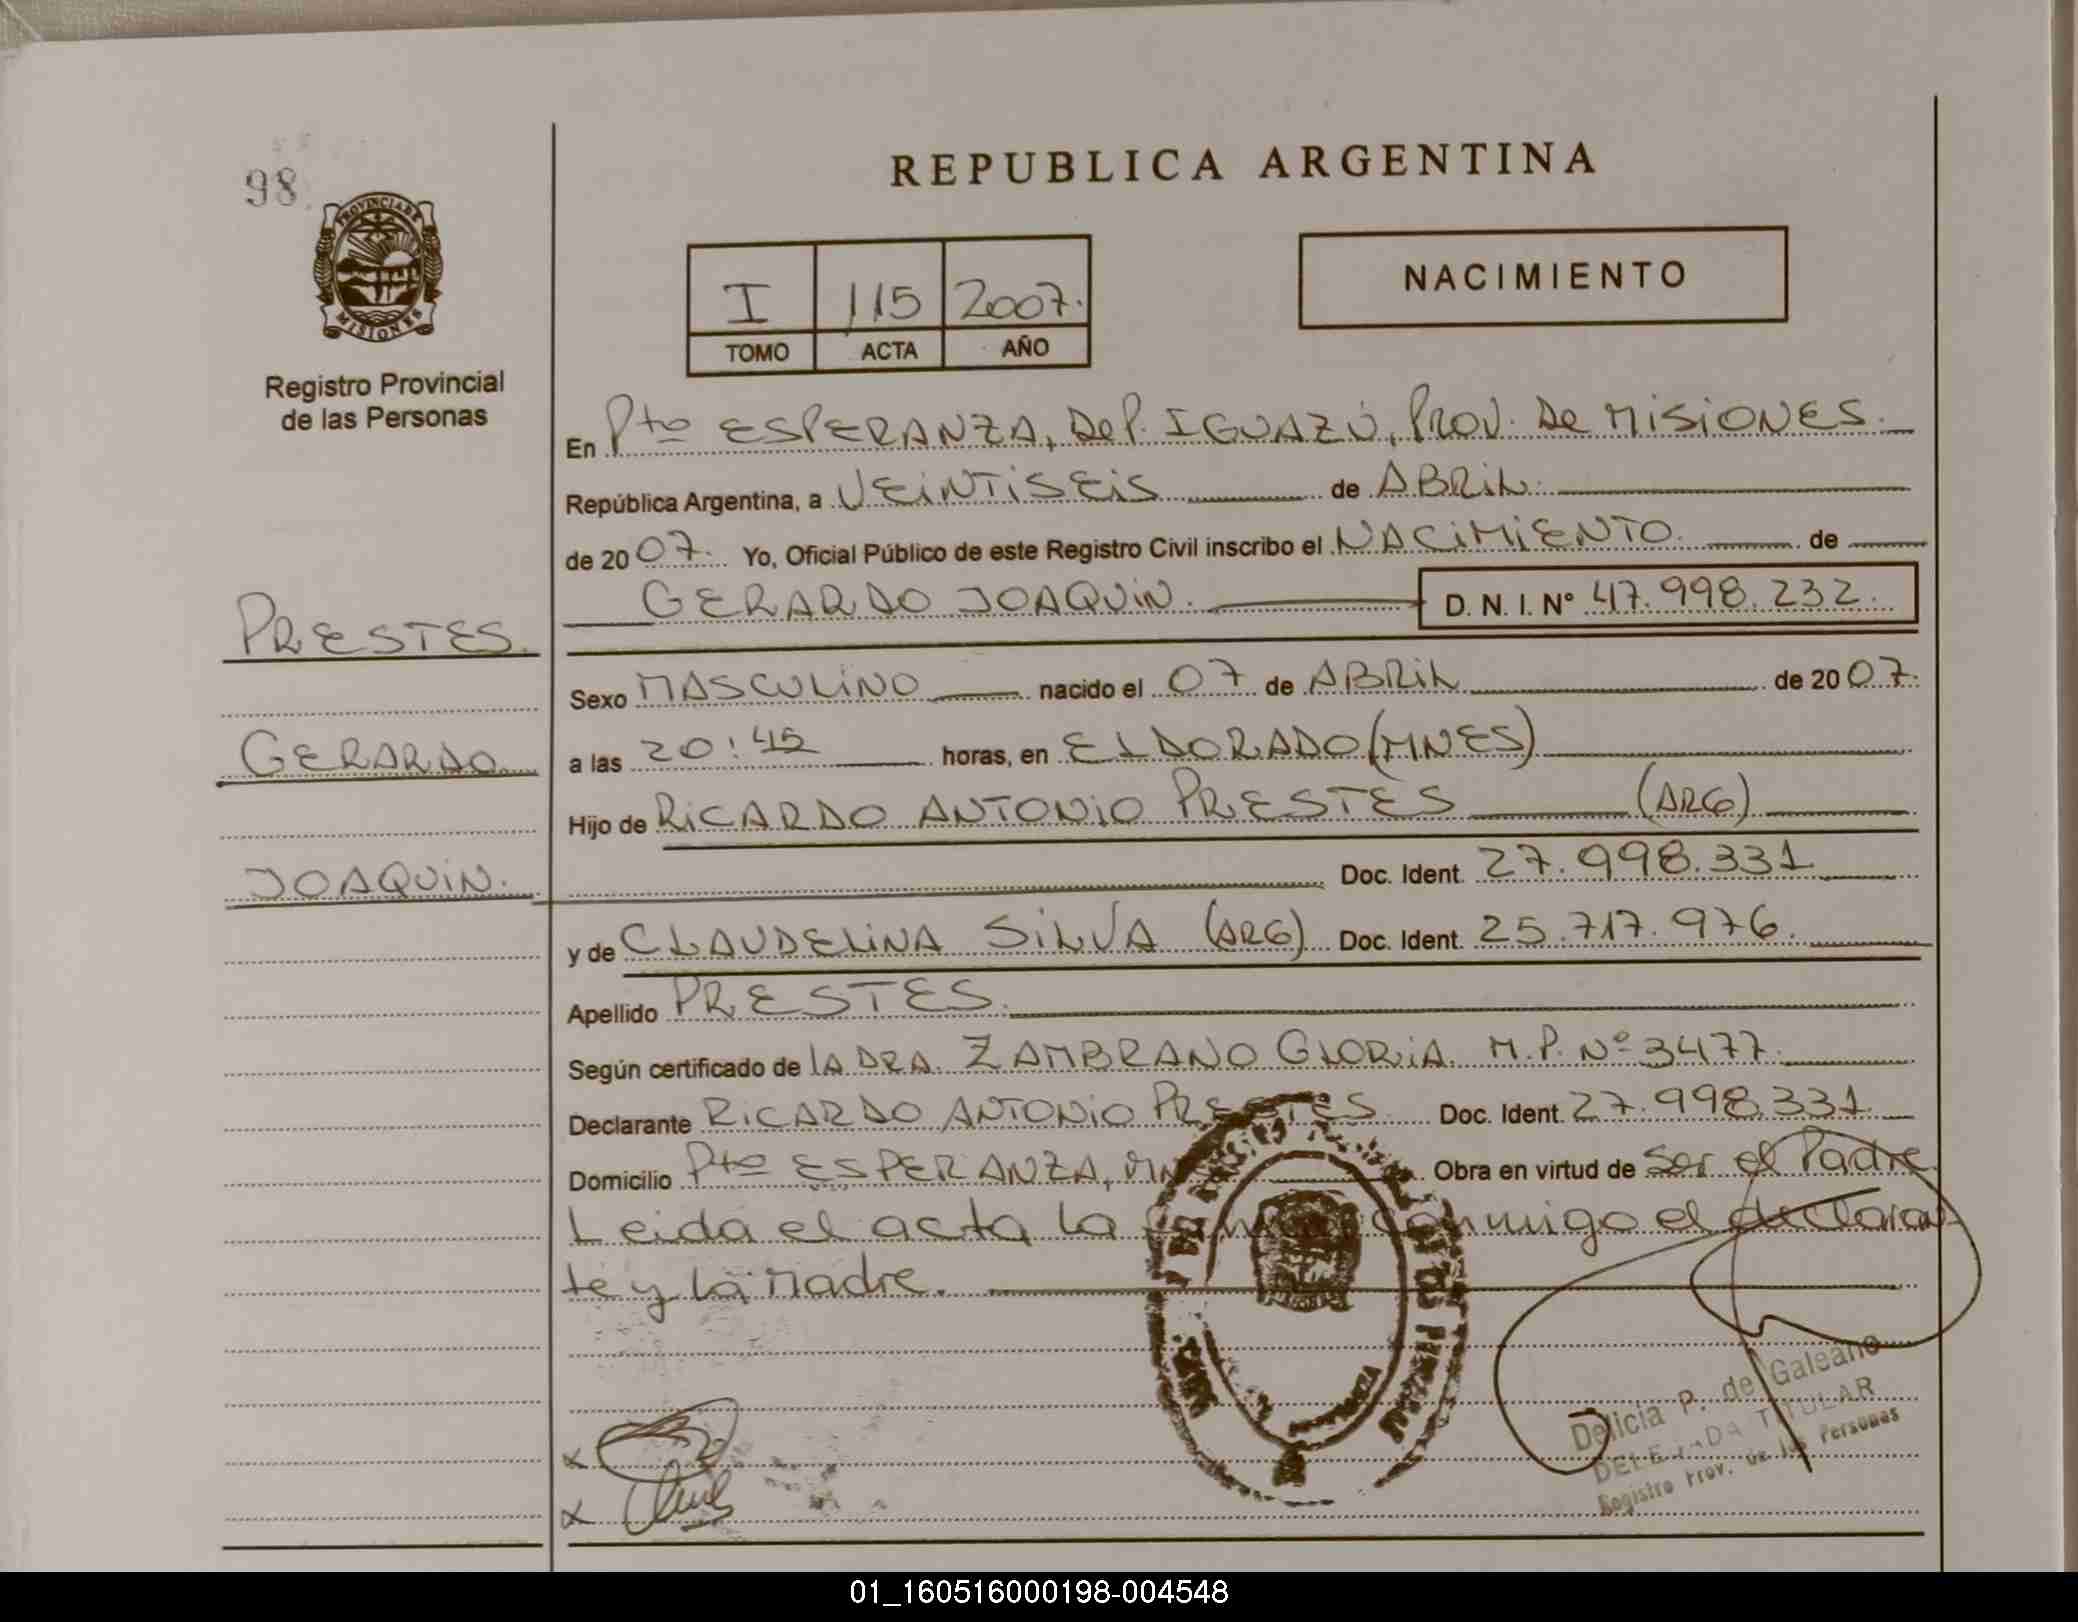 98
PROVINCIA DE
MISIONES
Registro Provincial
de las Personas
PRESTES.
GERARDO
JOAQUIN.
REPUBLICA ARGENTINA
I 115 2007.
TOMO ACTA AÑO
NACIMIENTO
En Pto ESPERANZA, DeP. IGUAZÚ, PROV. De MISIONES.
República Argentina, a VEINTISEIS de ABRIL.
de 2007. Yo, Oficial Público de este Registro Civil inscribo el NACIMIENTO de
GERARDO JOAQUIN. D. N. I. Nº 47.998.232.
Sexo MASCULINO nacido el 07 de ABRIL de 2007.
a las 20:45 horas, en ELDORADO (MNES)
Hijo de RICARDO ANTONIO PRESTES (ARG)
Doc. Ident. 27.998.331
y de CLAUDELINA SILVA (ARG) Doc. Ident. 25.717.976.
Apellido PRESTES.
Según certificado de lA DRA. ZAMBRANO GLORIA. M.P. Nº 3477.
Declarante RICARDO ANTONIO PRESTES Doc. Ident. 27.998.331
Domicilio Pto ESPERANZA, Obra en virtud de Ser el Padre.
Leida el acta la conmigo el declaran
te y la Madre.
Delicia P. de Galeano
DELEGADA TITULAR
Registro Prov. de las Personas
01_160516000198-004548